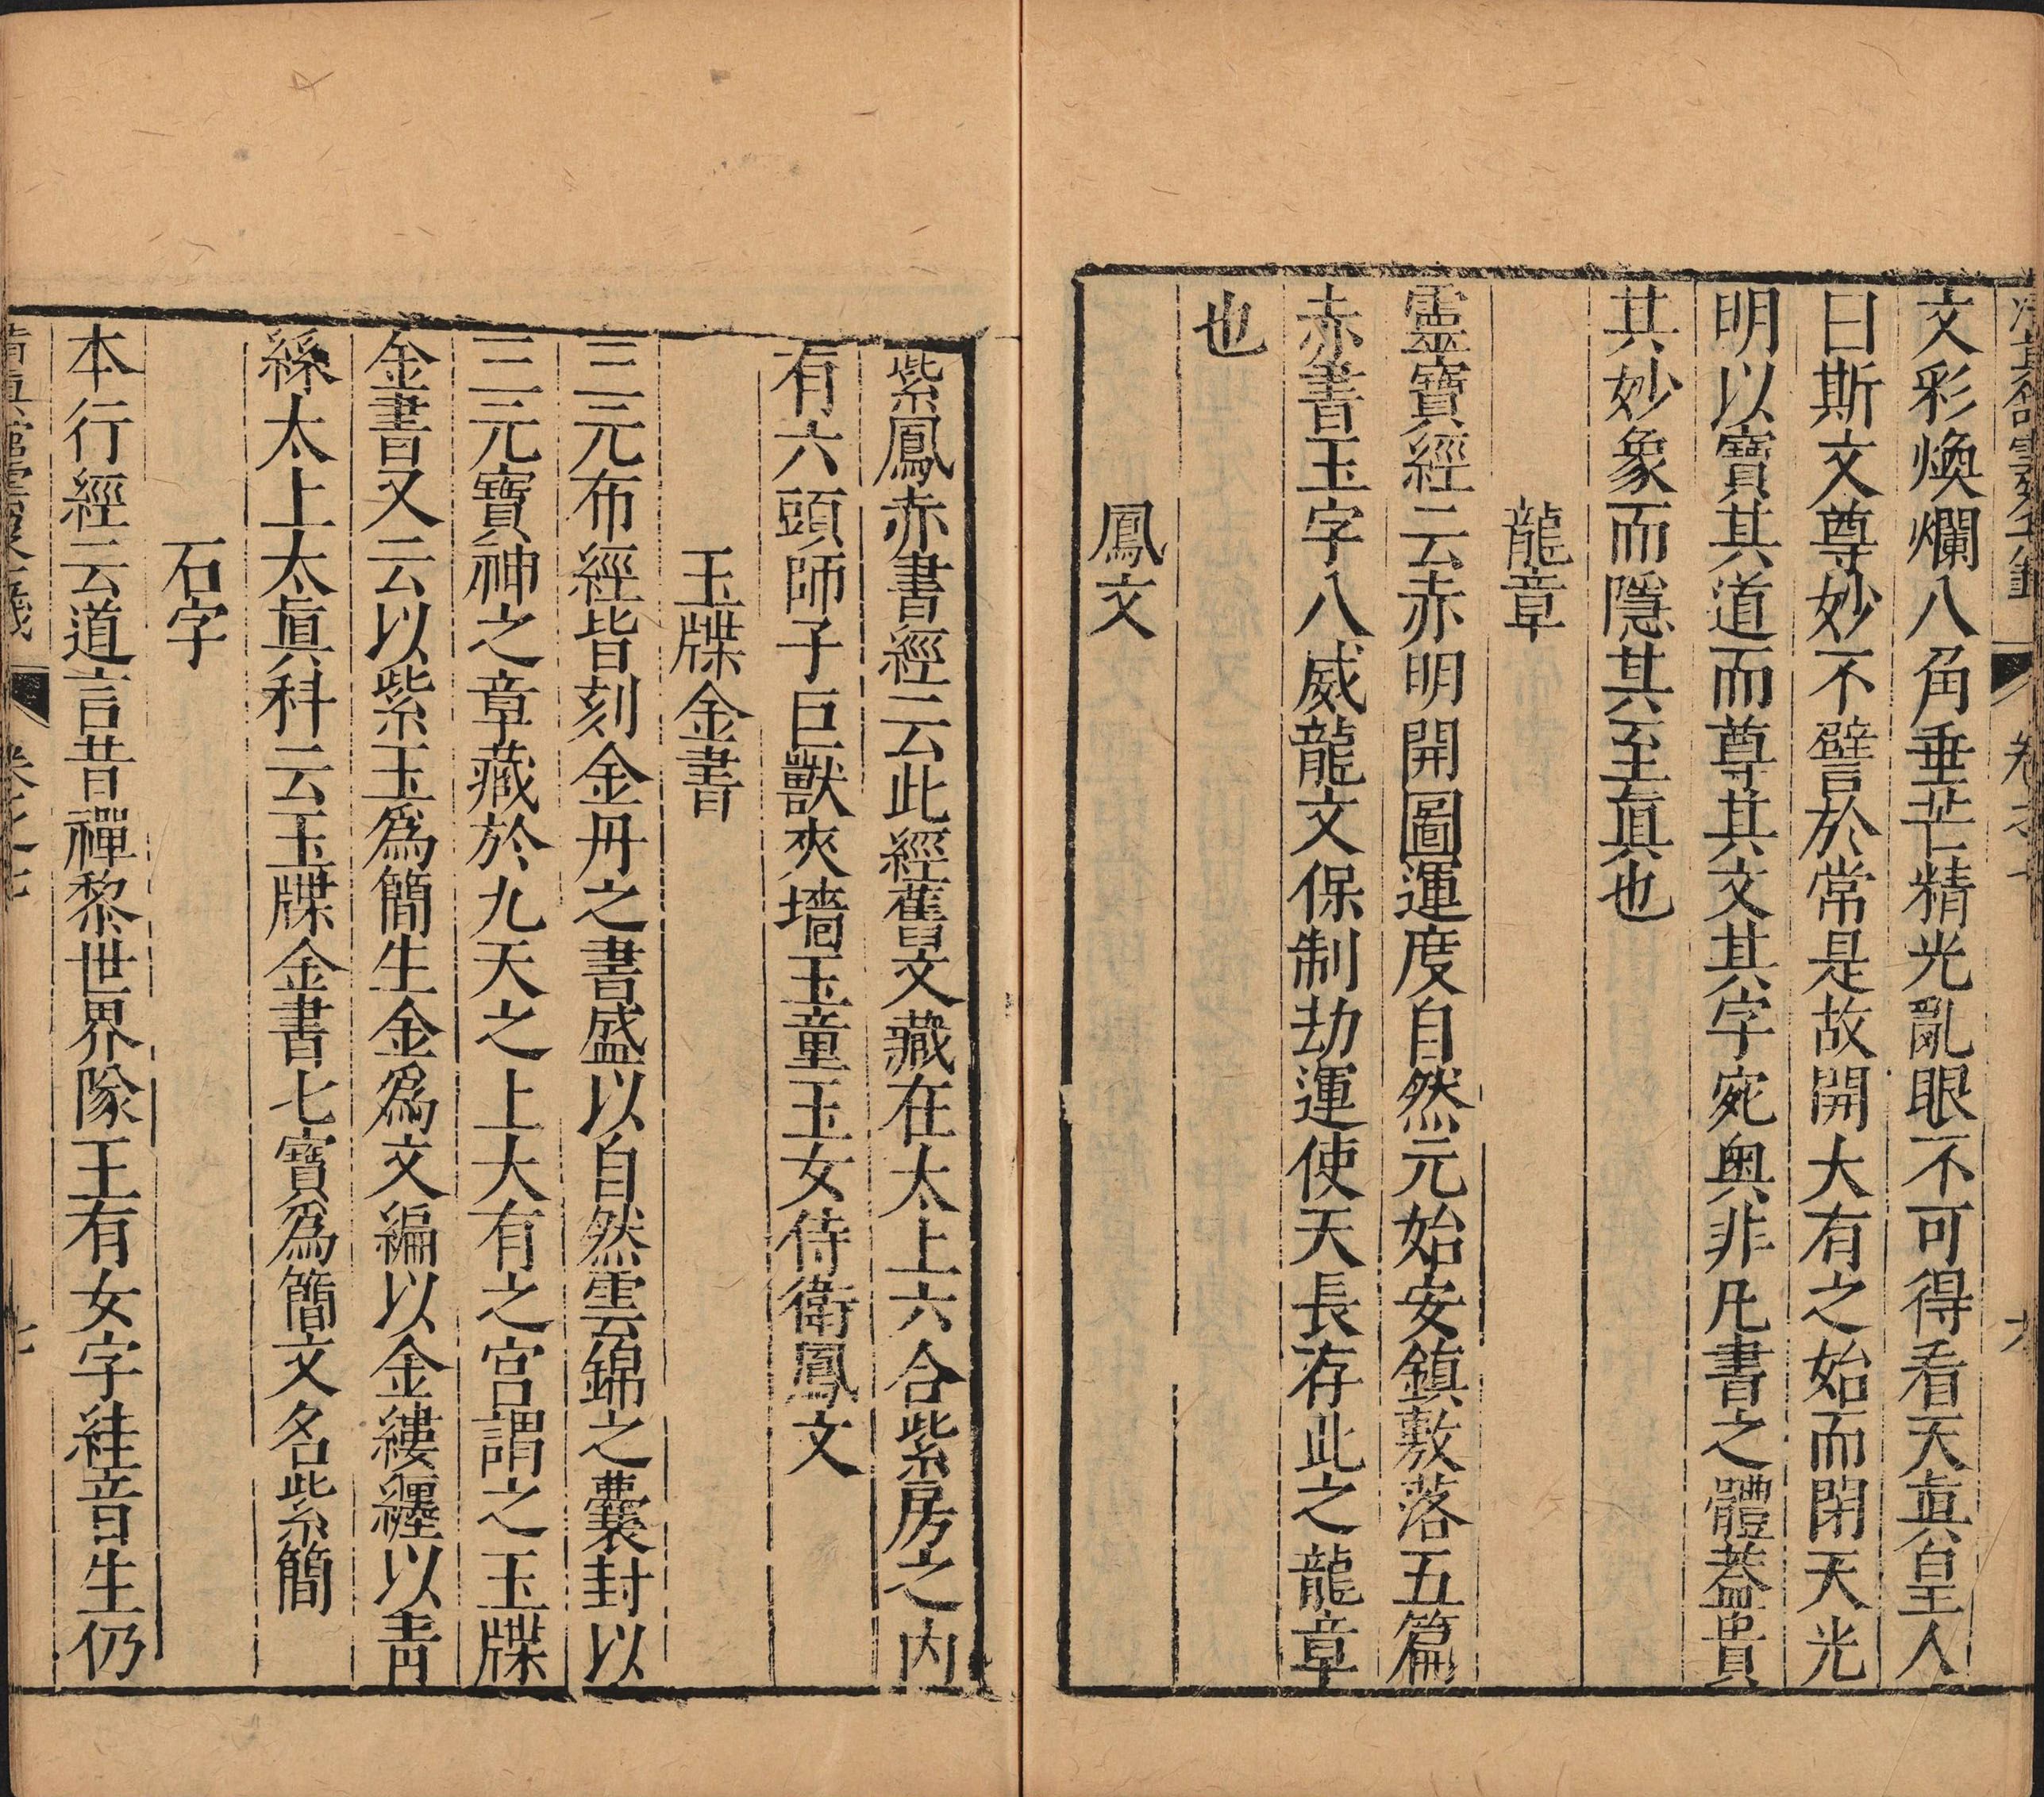 文彩煥爛八角垂芒精光亂眼不可得看天眞皇人
曰斯文尊妙不譬於常是故開大有之始而閉天光
明以寶其道而尊其文其字宛奥非凡書之體蓋貴
其妙象而隱其至眞也
龍章
靈寶經云赤明開圖運度自然元始安鎮敷落五篇
赤書玉字八威龍文保制劫運使天長存此之龍章
也
鳳文
紫鳳赤書經云此經舊文藏在太上六合紫房之内
有六頭師子巨獸夾墻玉童玉女侍衛鳳文
玉牒金書
三元布經皆刻金丹之書盛以自然雲錦之囊封以
三元寶神之章藏於九天之上大有之宫謂之玉牒
金書又云以紫玉爲簡生金爲文編以金縷纒以青
絲太上太眞科云玉牒金書七寶爲簡文名紫簡
石字
本行經云道言昔禪黎世界隊王有女字絓音生仍